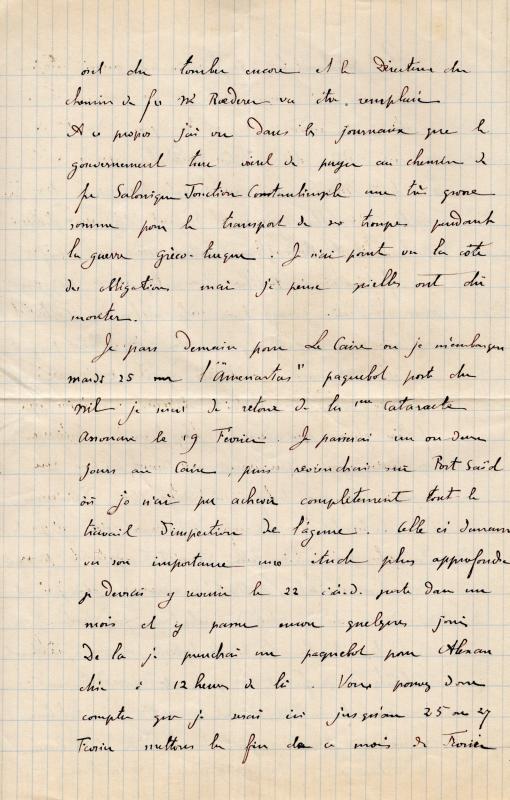 du tomber encore et le Directeur du
chemin de fer Mr Rœderer va être remplacé
A ce propos j'ai vu dans les journaux que le
gouvernement turc vient de payer au chemin de
fer Salonique Jonction Constantinople une très grosse
somme pour le transport de ses troupes pendant
la guerre Gréco-turque. Je n'ai point vu la côte
des obligations mais je pense qu'elles ont dû
monter.
Je pars demain pour Le Caire où je m'embarque
mardi 25 sur l' paquebot poste du
Nil je serai de retour de la 1ère Cataracte
le 19 Février. Je passerai un ou deux
jours au Caire, puis reviendrai sur Port Saïd
où je n'ai pu achever complètement tout le
travail d'inspection de l'agence. Celle ci
vu son importance une étude plus approfondie
je devrais y revenir le 22 c.à.d. juste dans un
mois et y passer encore quelques jours
De la je prendrai un paquebot pour Alexan
drie à 12 heures de là. Vous pouvez donc
compter que je serai ici jusqu'au 25 ou 27
Février mettons la fin de ce mois de Février